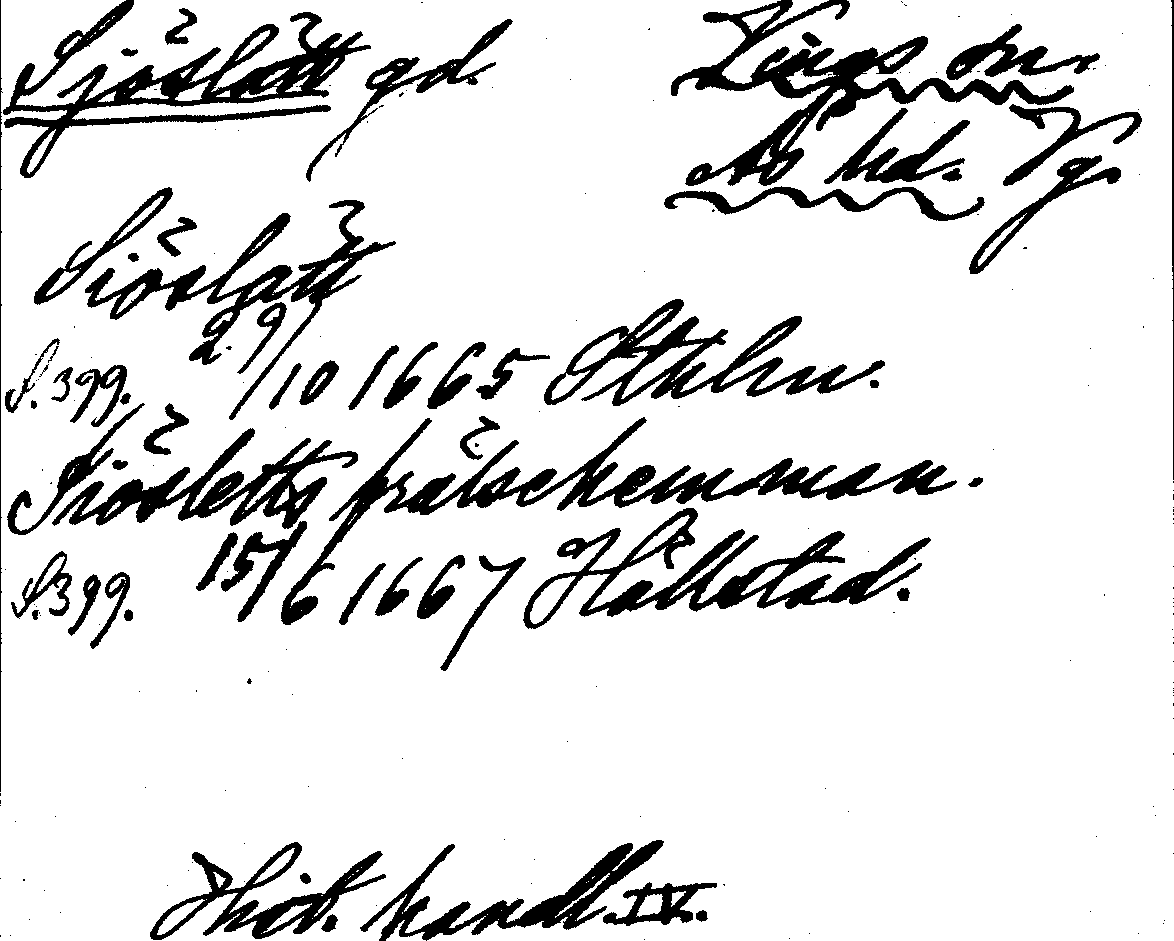 Sjöslätt gd. Vings sn.
Ås hd. Vg.
Siöslätt
S. 399. 29/10 1665 Sthlm.
Siösletts frälsehemman.
S. 399. 15/6 1667 Hällstad.
Hist. handl. IV.